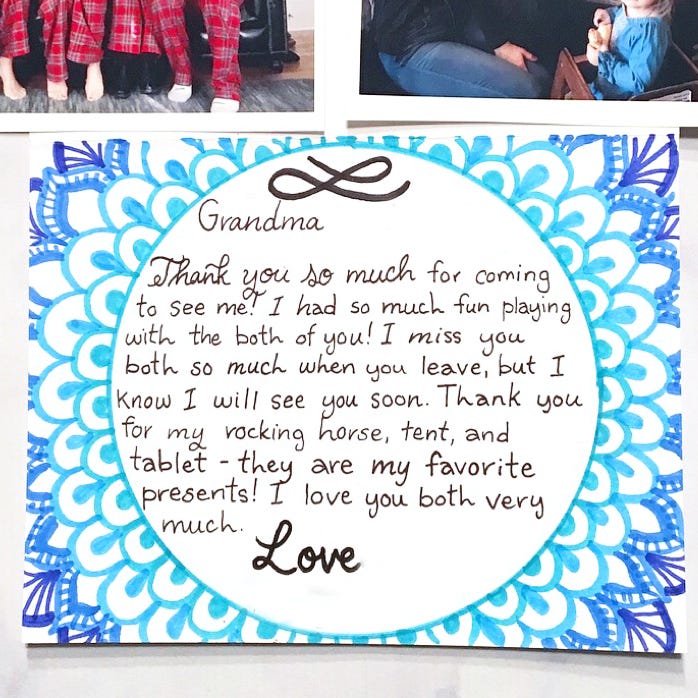 Grandma
Thank you so much for coming
to see me! I had so much fun playing
with the both of you! I miss you
both so much when you leave, but I
know I will see you soon. Thank you
for my rocking horse, tent, and
tablet - they are my favorite
presents! I love you both very
much.
Love